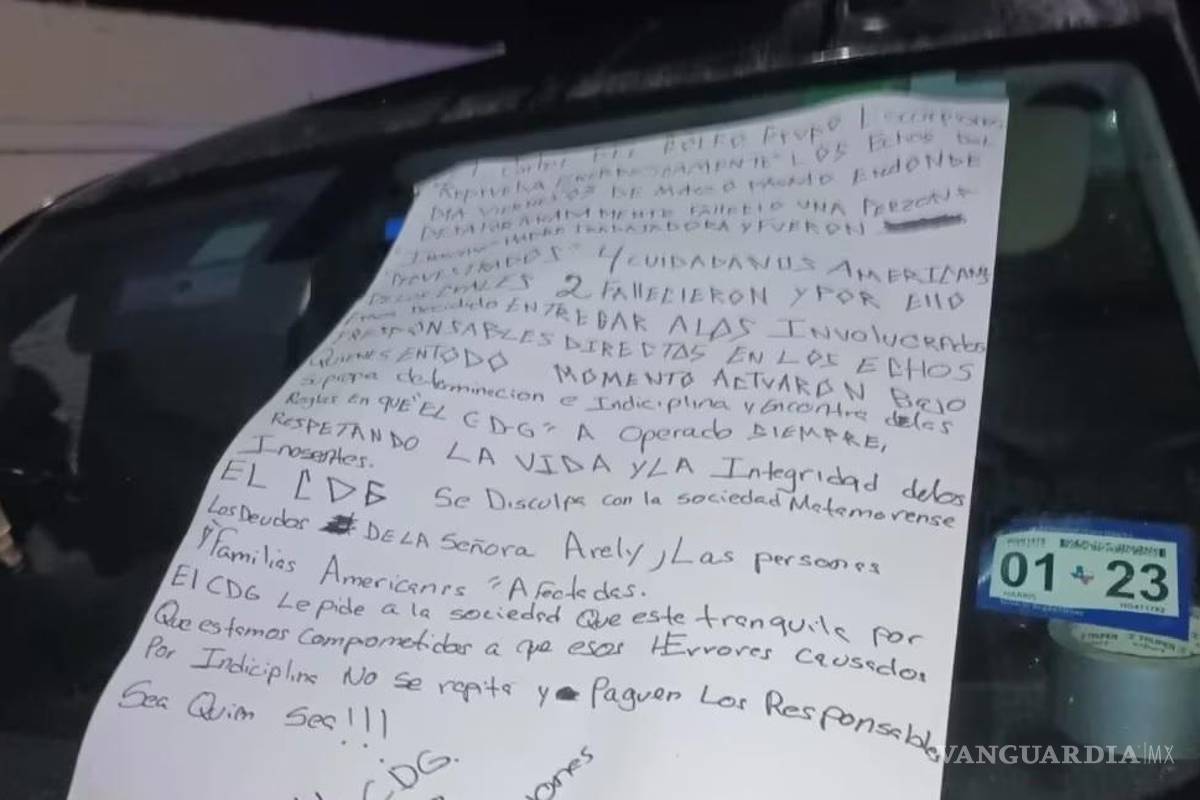 GOLFO GRUPO
"REPRUEVA ENERGICAMENTE" LOS Echos DEL
DIA VIERNES 03 DE MARZO ENDONDE
FALLECIO UNA PERZONA
TRABAJADORA Y FUERON
4 CUIDADANOS AMERICANS
2 FALLECIERON Y POR Ello
Decidido ENTREGAR ALOS INVOLUCRADOS
RESPONSABLES DIRECTOS EN LOS ECHOS
QUIENES ENTODO MOMENTO ACTVARON BAJO
determinacion e Indiciplina y Encontra delas
Reglas EN QUE "EL CDG" A Operado SIEMPRE,
RESPETANDO LA VIDA Y LA Integridad delos
Inosentes.
EL CDG Se Disculpa con la sociedad Matamorense
Los Deudos DE LA Señora Arely, Las personas
y Familias Americanas "Afectadas.
El CDG Le pide a la sociedad Que este tranquila por
Que estamos Comprometidos a que esos Errores Causados
Por Indiciplina No se repita y Paguen Los Responsables
Sea Quien Sea!!!
CDG.
01 23
HARRIS
VANGUARDIA MX